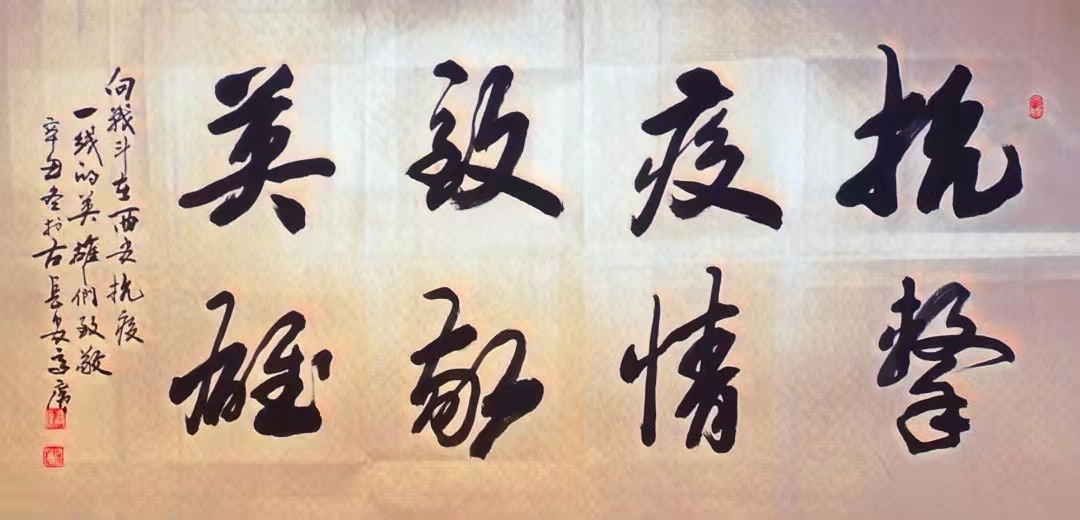 抗擊
疫情
致敬
英雄
向战斗在西安抗疫
一线的英雄們致敬
辛丑冬於古長安